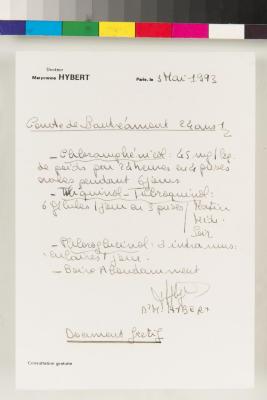 Docteur
Maryvonne HYBERT
Paris, le 3 Mai 1993
Comte de Lautréamont 24 ans 1/2
- Chloramphénicol : 45 mg/kg.
de poids par 24 heures en 4 prises
orales pendant 6 jours
6 gélules / jour en 3 prises / Matin
Midi
Soir
- Phloroglucinol : 2 intramus-
culaires / jour.
- Boire Abondamment
Dr M. HYBERT
Document fictif
Consultation gratuite